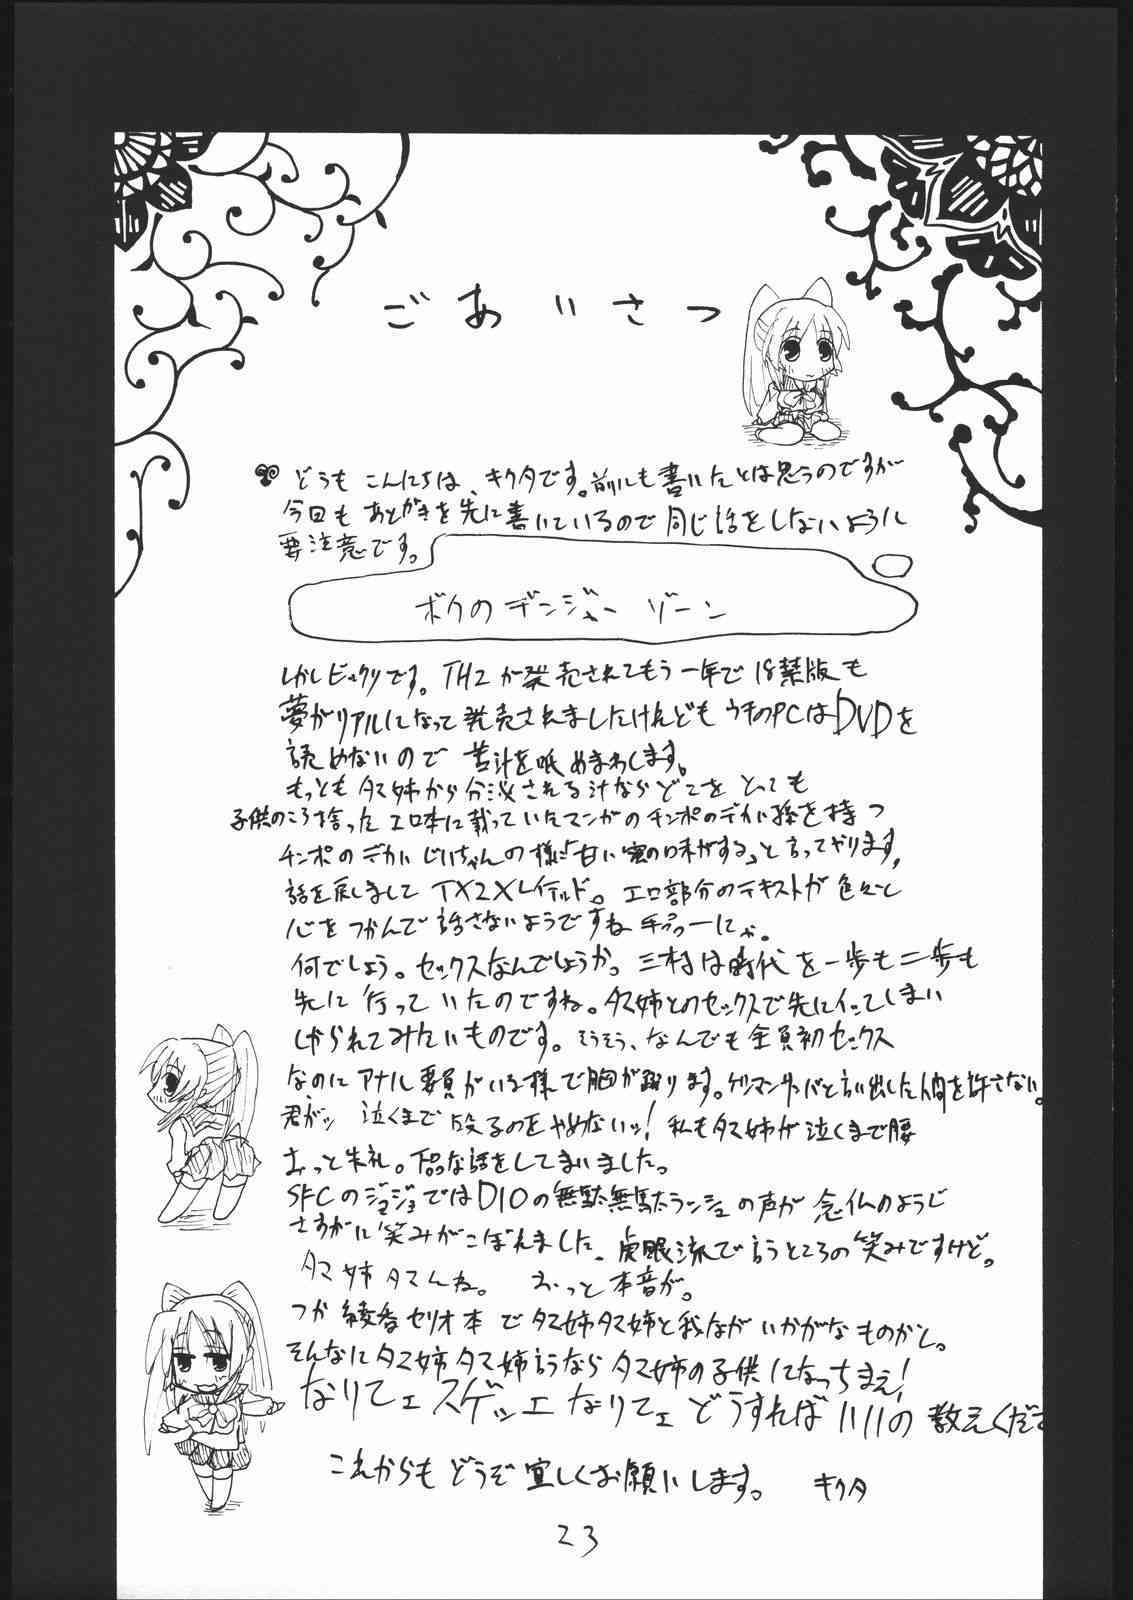 ごあいさつ
どうも こんにちは、キクタです。前にも書いたとは思うのですが
今回も あとがきを先に書いているので 同じ話をしないように
要注意です。
ボクのデンジャーゾーン
しかしビックリです。TH2が発売されてもう一年で18禁版も
夢がリアルになって発売されましたけれども ウチのPCはDVDを
読めないので 苦汁を舐めまわします。
もっとも タマ姉から分泌される汁ならどこをとっても
子供のころ拾ったエロ本に載っていたマンガのチンポのデカい孫を持つ
チンポのデカいじいちゃんの様に「甘い蜜の味がする」と言ってやります。
話を戻しまして TX2X レイテルド。エロ部分のテキストが色々と
心をつかんで話さないようですね
何でしょう。セックスなんでしょうか。三村は時代を一歩も二歩も
先に行っていたのですね。タマ姉とのセックスで先にイッてしまい
しかられてみたいものです。そうそう、なんでも全員初セックス
なのにアナル要員がいる様で胸が躍ります。ゲリマンサバと言い出した人間を許さない。
君がッ 泣くまで 殴るのをやめないッ! 私もタマ姉が泣くまで腰
おっと失礼。下品な話をしてまいました。
SFCのジョジョではDIOの無駄無駄ランシュの声が 念仏のようじ
さすがに笑みがこぼれました。虎眼流で言うところの笑みですけど。
タマ姉タマんね。 おっと本音が。
つか綾香セリオ本でタマ姉タマ姉と我ながいかがなものかと。
そんなにタマ姉タマ姉言うならタマ姉の子供になっちまえ!
なりてェスゲッェなりてェどうすればいいの教えくださ
これからもどうぞ宜しくお願いします。 キクタ
23